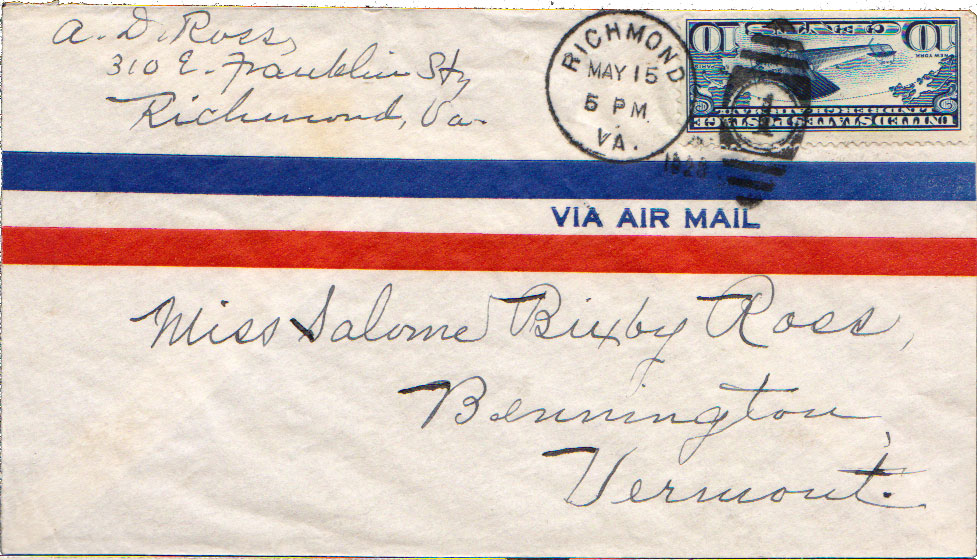 A. D. Ross,
310 E. Franklin St.,
Richmond, Va.
RICHMOND
MAY 15
5 PM
VA.
1928
1
UNITED STATES POSTAGE
LINDBERGH AIR MAIL
NEW YORK
10 10
VIA AIR MAIL
Miss Salome Bixby Ross,
Bennington,
Vermont.